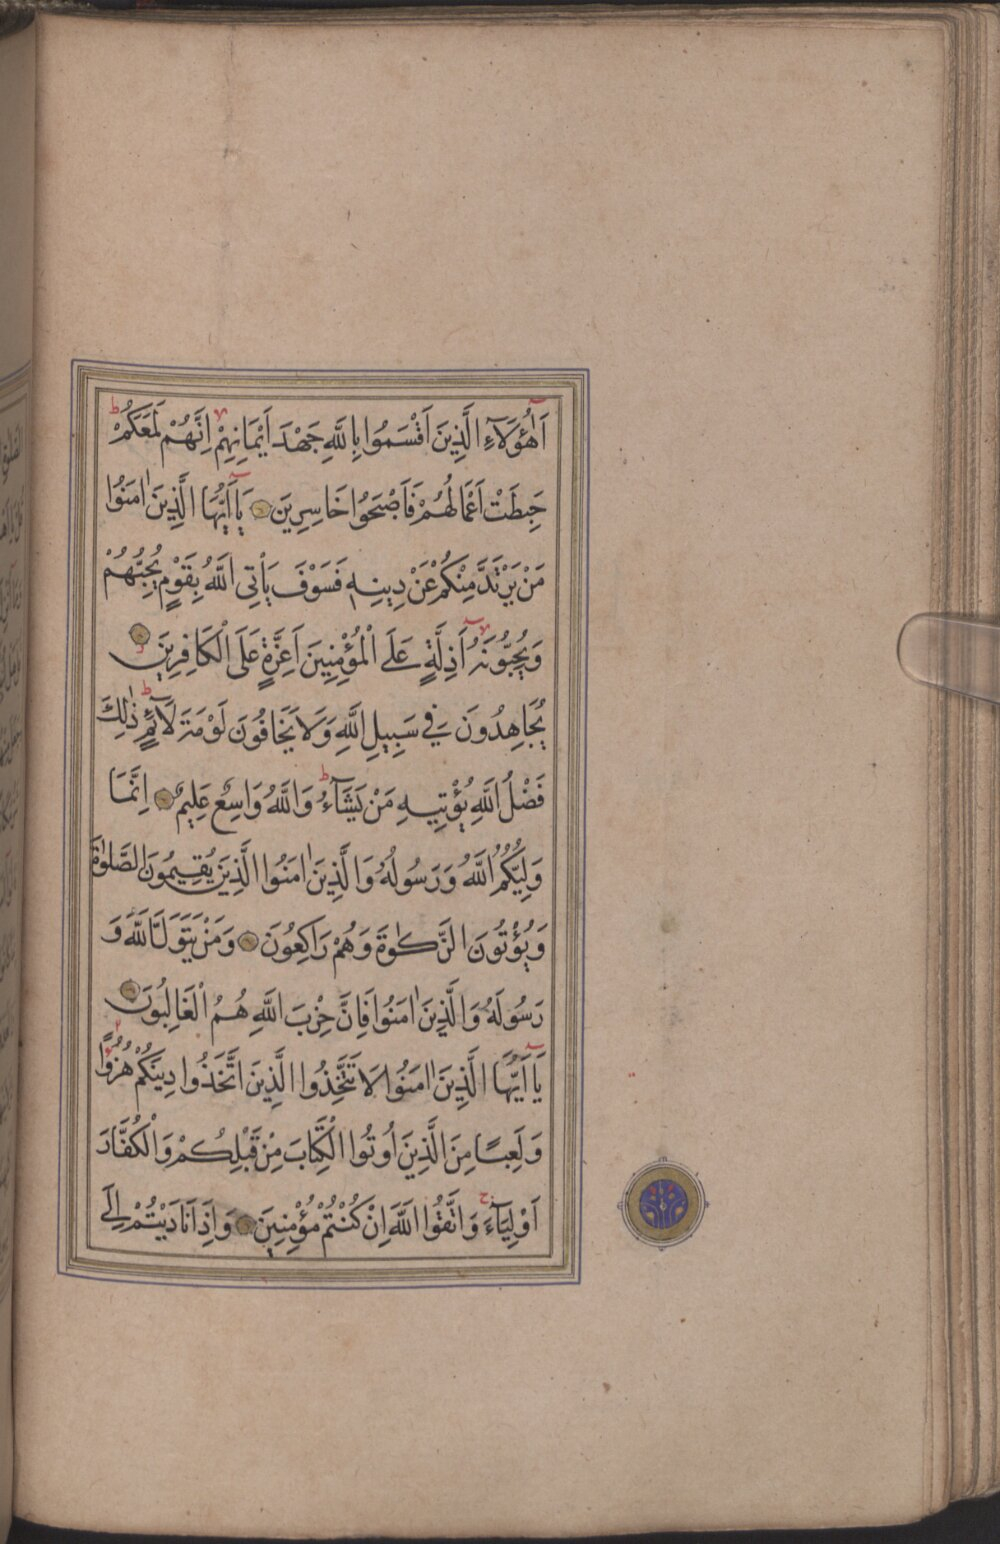 اَهٰٓؤُلَآءِ الَّذِينَ اَقْسَمُوا بِاللّٰهِ جَهْدَ اَيْمَانِهِمْ اِنَّهُمْ لَمَعَكُمْ
حَبِطَتْ اَعْمَالُهُمْ فَاَصْبَحُوا خَاسِرِينَ يَآ اَيُّهَا الَّذِينَ اٰمَنُوا
مَنْ يَرْتَدَّ مِنْكُمْ عَنْ دِينِهٖ فَسَوْفَ يَاْتِى اللّٰهُ بِقَوْمٍ يُحِبُّهُمْ
وَيُحِبُّونَهُٓ اَذِلَّةٍ عَلَى الْمُؤْمِنِينَ اَعِزَّةٍ عَلَى الْكَافِرِينَ
يُجَاهِدُونَ فِي سَبِيلِ اللّٰهِ وَلَا يَخَافُونَ لَوْمَةَ لَآئِمٍ ذٰلِكَ
فَضْلُ اللّٰهِ يُؤْتِيهِ مَنْ يَشَآءُ وَاللّٰهُ وَاسِعٌ عَلِيمٌ اِنَّمَا
وَلِيُّكُمُ اللّٰهُ وَرَسُولُهُ وَالَّذِينَ اٰمَنُوا الَّذِينَ يُقِيمُونَ الصَّلٰوةَ
وَيُؤْتُونَ الزَّكٰوةَ وَهُمْ رَاكِعُونَ وَمَنْ يَتَوَلَّ اللّٰهَ وَ
رَسُولَهُ وَالَّذِينَ اٰمَنُوا فَاِنَّ حِزْبَ اللّٰهِ هُمُ الْغَالِبُونَ
يَآ اَيُّهَا الَّذِينَ اٰمَنُوا لَا تَتَّخِذُوا الَّذِينَ اتَّخَذُوا دِينَكُمْ هُزُوًا
وَلَعِبًا مِنَ الَّذِينَ اُوتُوا الْكِتَابَ مِنْ قَبْلِكُمْ وَالْكُفَّارَ
اَوْلِيَآءَ وَاتَّقُوا اللّٰهَ اِنْ كُنْتُمْ مُؤْمِنِينَ وَاِذَا نَادَيْتُمْ اِلَى